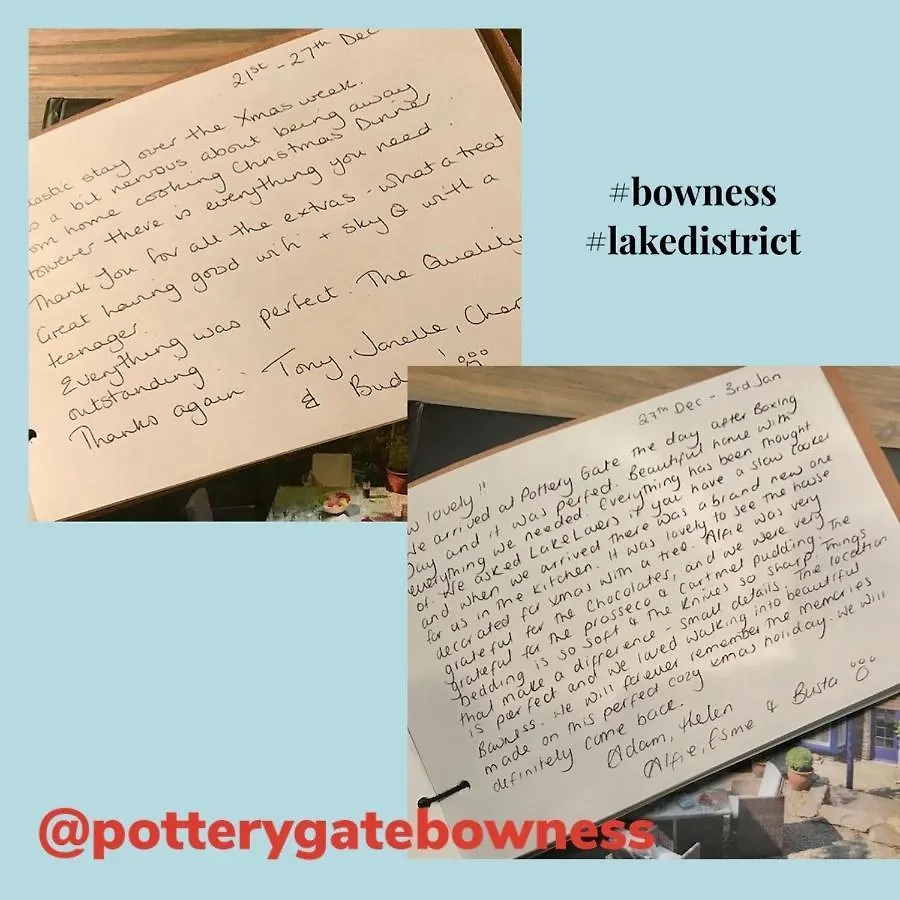 21st - 27th Dec
stay over the Xmas week.
a bit nervous about being away
home cooking Christmas Dinner
However there is everything you need.
Thank You for all the extras - what a treat
Great having good wifi + Sky Q with a
teenager.
Everything was perfect. The Quality
outstanding.
Thanks again Tony, Janelle,
&
#bowness
#lakedistrict
27th Dec - 3rd Jan
lovely!!
We arrived at Pottery Gate the day after Boxing
Day and it was perfect. Beautiful home with
everything we needed. Everything has been thought
of. We asked LakeLovers if you have a slow cooker
and when we arrived there was a brand new one
for us in the kitchen. It was lovely to see the house
decorated for xmas with a tree. Alfie was very
grateful for the chocolates, and we were very
grateful for the prosseco & cartmel pudding. The
bedding is so soft & the knives so sharp. Things
that make a difference - small details. The location
is perfect and we loved walking into beautiful
Bowness. We will forever remember the memories
made on this perfect cozy xmas holiday. We will
definitely come back.
Adam, Helen
Alfie, Esme & Busta
@potterygatebowness